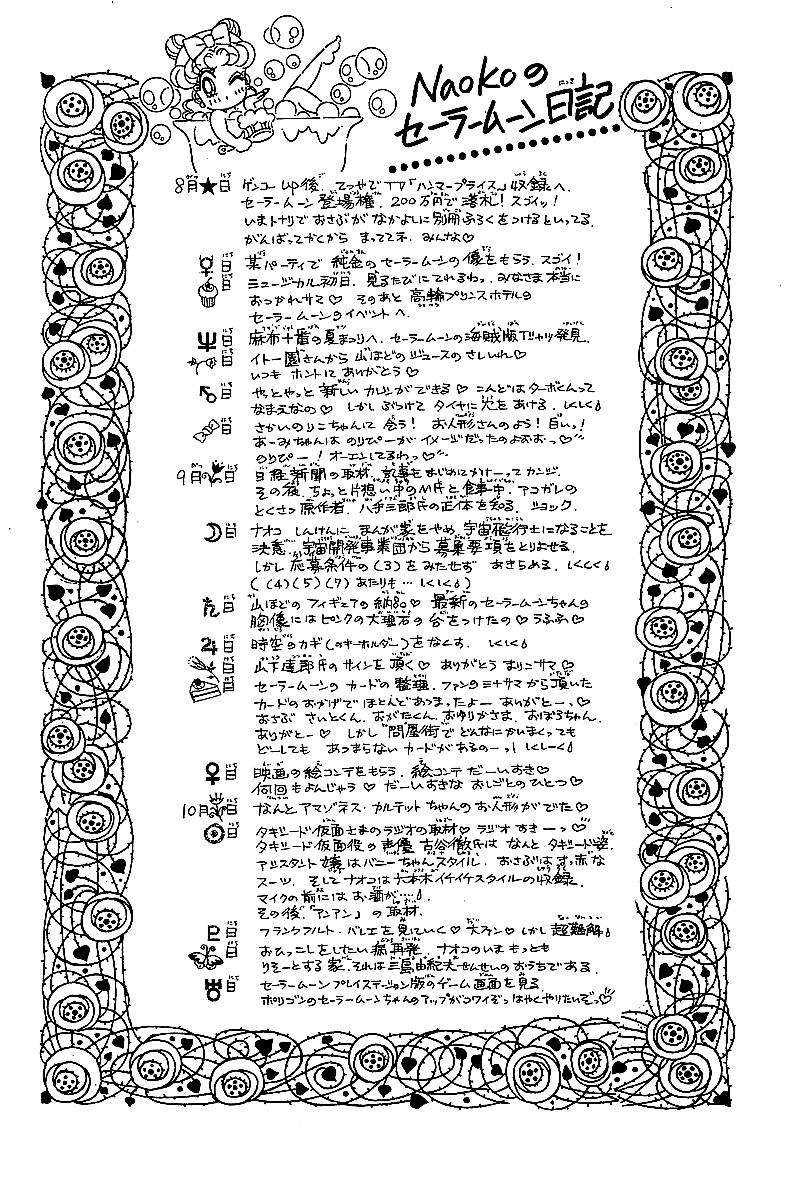 Naokoの
セーラームーン日記
8月★日 ゲンコーup後、てつやでTV「ハンマープライス」収録へ。
セーラームーン登場権、200万円で落札！スゴイッ！
いまトナリでおさぶがなかよしに別冊ふろくをつけるといってる。
がんばってかくから まっててネ、みんな♡
☿日 某パーティで 純金のセーラームーンの像をもらう。スゴイ！
日 ミュージカル初日。見るたびにてれるわっ。みなさま本当に
おつかれサマ♡ そのあと 高輪プリンスホテルの
セーラームーンのイベントへ。
♆日 麻布十番の夏まつりへ。セーラームーンの海賊版Tシャツ発見。
日 イトー園さんから 山ほどのジュースのさしいれ♡
いつも ホントに ありがとう♡
♂日 やっとやっと 新しい カレシができる♡ こんどはターボくんって
なまえなの♡ しかし ぶつけて タイヤに穴をあける。しくしく
日 さかいのりこちゃんに 会う！ お人形さんのよう！白いっ！
あーみちゃんは のりピーが イメージだったのよおおっ♡
のりぴー！オーエンしてるわっ♡
9月の日 日経新聞の取材。記事もまじめにかけーってカンジ。
その後、ちょっと片想い中のM氏と食事中、アコガレの
とくさつ原作者、八手三郎氏の正体を知る。ショック。
☽日 ナオコ しんけんに まんが家をやめ、宇宙飛行士になることを
決意。宇宙開発事業団から 募集要項をとりよせる。
しかし 応募条件の(3)をみたせず あきらめる。しくしく
((4)(5)(7)あたりも… しくしく)
日 山ほどのフィギュアの納品♡ 最新のセーラームーンちゃんの
胸像にはピンクの大理石の台をつけたの♡ うふふ♡
♃日 時空のカギ(のキーホルダー)をなくす。 しくしく
日 山下達郎氏のサインを頂く♡ ありがとう まりこサマ♡
日 セーラームーンの カードの 整理。ファンのミナサマから頂いた
カードのおかげで ほとんどあつまったよー ありがとーっ♡
おさぶ さいとくん、おがたくん、おゆりかさま、おぼろちゃん、
ありがとー♡ しかし 問屋街で どんなにかいまくっても
どーしても あつまらない カードがあるのーっ！しくしく
♀日 映画の絵コンテをもらう。絵コンテ だーいすき♡
何回もよんじゃう♡ だーいすきな おしごとのひとつ♡
10月日 なんとアマゾネス・カルテットちゃんのお人形がでた♡
☉日 タキシード仮面さまのラジオの取材♡ ラジオ すきーっ♡
タキシード仮面役の声優 古谷徹氏は なんと タキシード姿。
アシスタント嬢はバニーちゃんスタイル。おさぶは まっ赤な
スーツ。そして ナオコは 六本木イケイケスタイルの収録。
マイクの前には お酒が……！
その後、「アンアン」の取材。
♇日 フランクフルト・バレエを見にいく♡ 大ファン♡ しかし 超難解
日 おひっこしをしたい病 再発。ナオコのいま もっとも
りそーとする家、それは三島由紀夫せんせいのおうちである。
♅日 セーラームーン プレイステーション版のゲーム画面を見る。
ポリゴンのセーラームーンちゃんのアップがカワイぞっ はやくやりたいぞっ♡